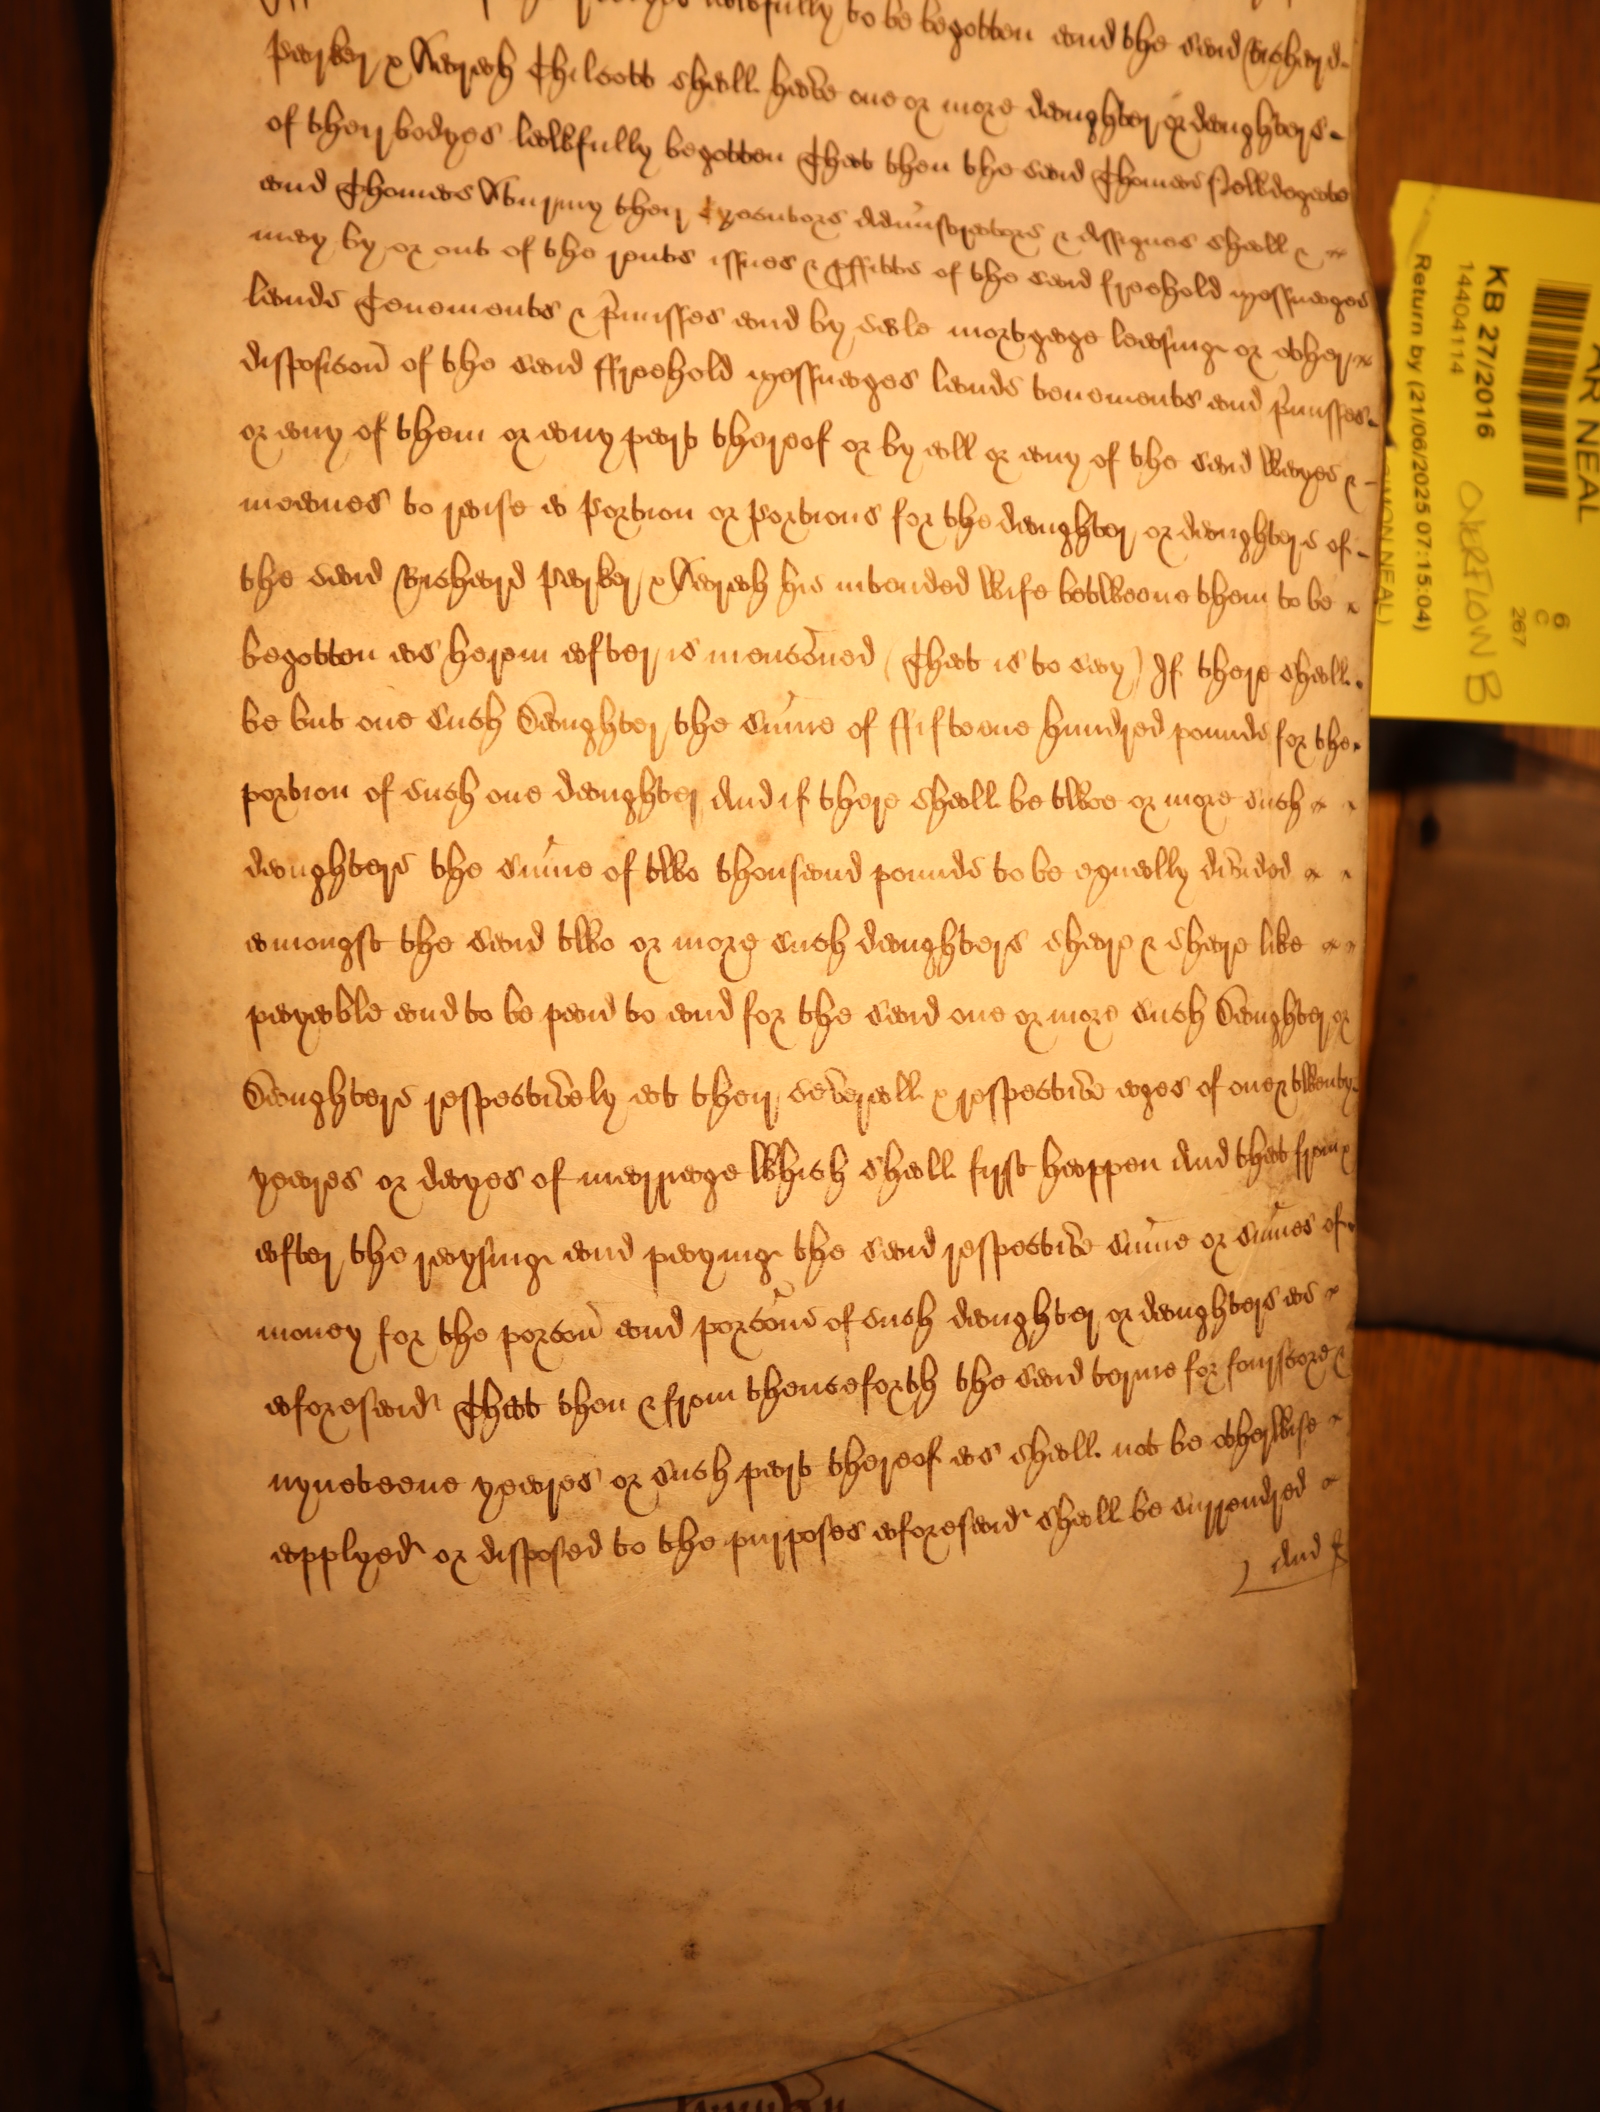 lawfully to be begotten and the said Richard
Parker & Sarah Chilcott shall have one or more daughter or daughters
of their bodyes lawfully begotten That then the said Thomas
and Thomas their Executors Administrators & Assignes shall &
may by or out of the rents issues & proffitts of the said freehold messuages
lands Tenements & p'misses and by sale mortgage leasing or other
disposicon of the said ffreehold messuages lands tenements and p'misses
or any of them or any part thereof or by all or any of the said wayes &
meanes to raise a portion or portions for the daughter or daughters of
the said Richard Parker & Sarah his intended wife betweene them to be
begotten as herein after is mencõned (That is to say) If there shall
be but one such Daughter the sum̃e of ffifteene hundred pounds for the
portion of such one daughter And if there shall be twoe or more such
daughters the sum̃e of two thousand pounds to be equally divided
amongst the said two or more such daughters share & share like
payable and to be paid to and for the said one or more such Daughter or
Daughters respectively at their severall & respective ages of one & twenty
yeares or dayes of marriage which shall first happen And that from &
after the raysing and paying the said respective sum̃e or sum̃es of
money for the porcon and porcons of such daughter or daughters as
aforesaid That then & from thenceforth the said terme for fourscore &
nyneteene yeares or such part thereof as shall not be otherwise
applyed or disposed to the purposes aforesaid shall be surrendred
And
AR NEAL
KB 27/2016
14404114
Return by (21/06/2025 07:15:04)
SIMON NEAL)
OVERFLOW B
6
C
267